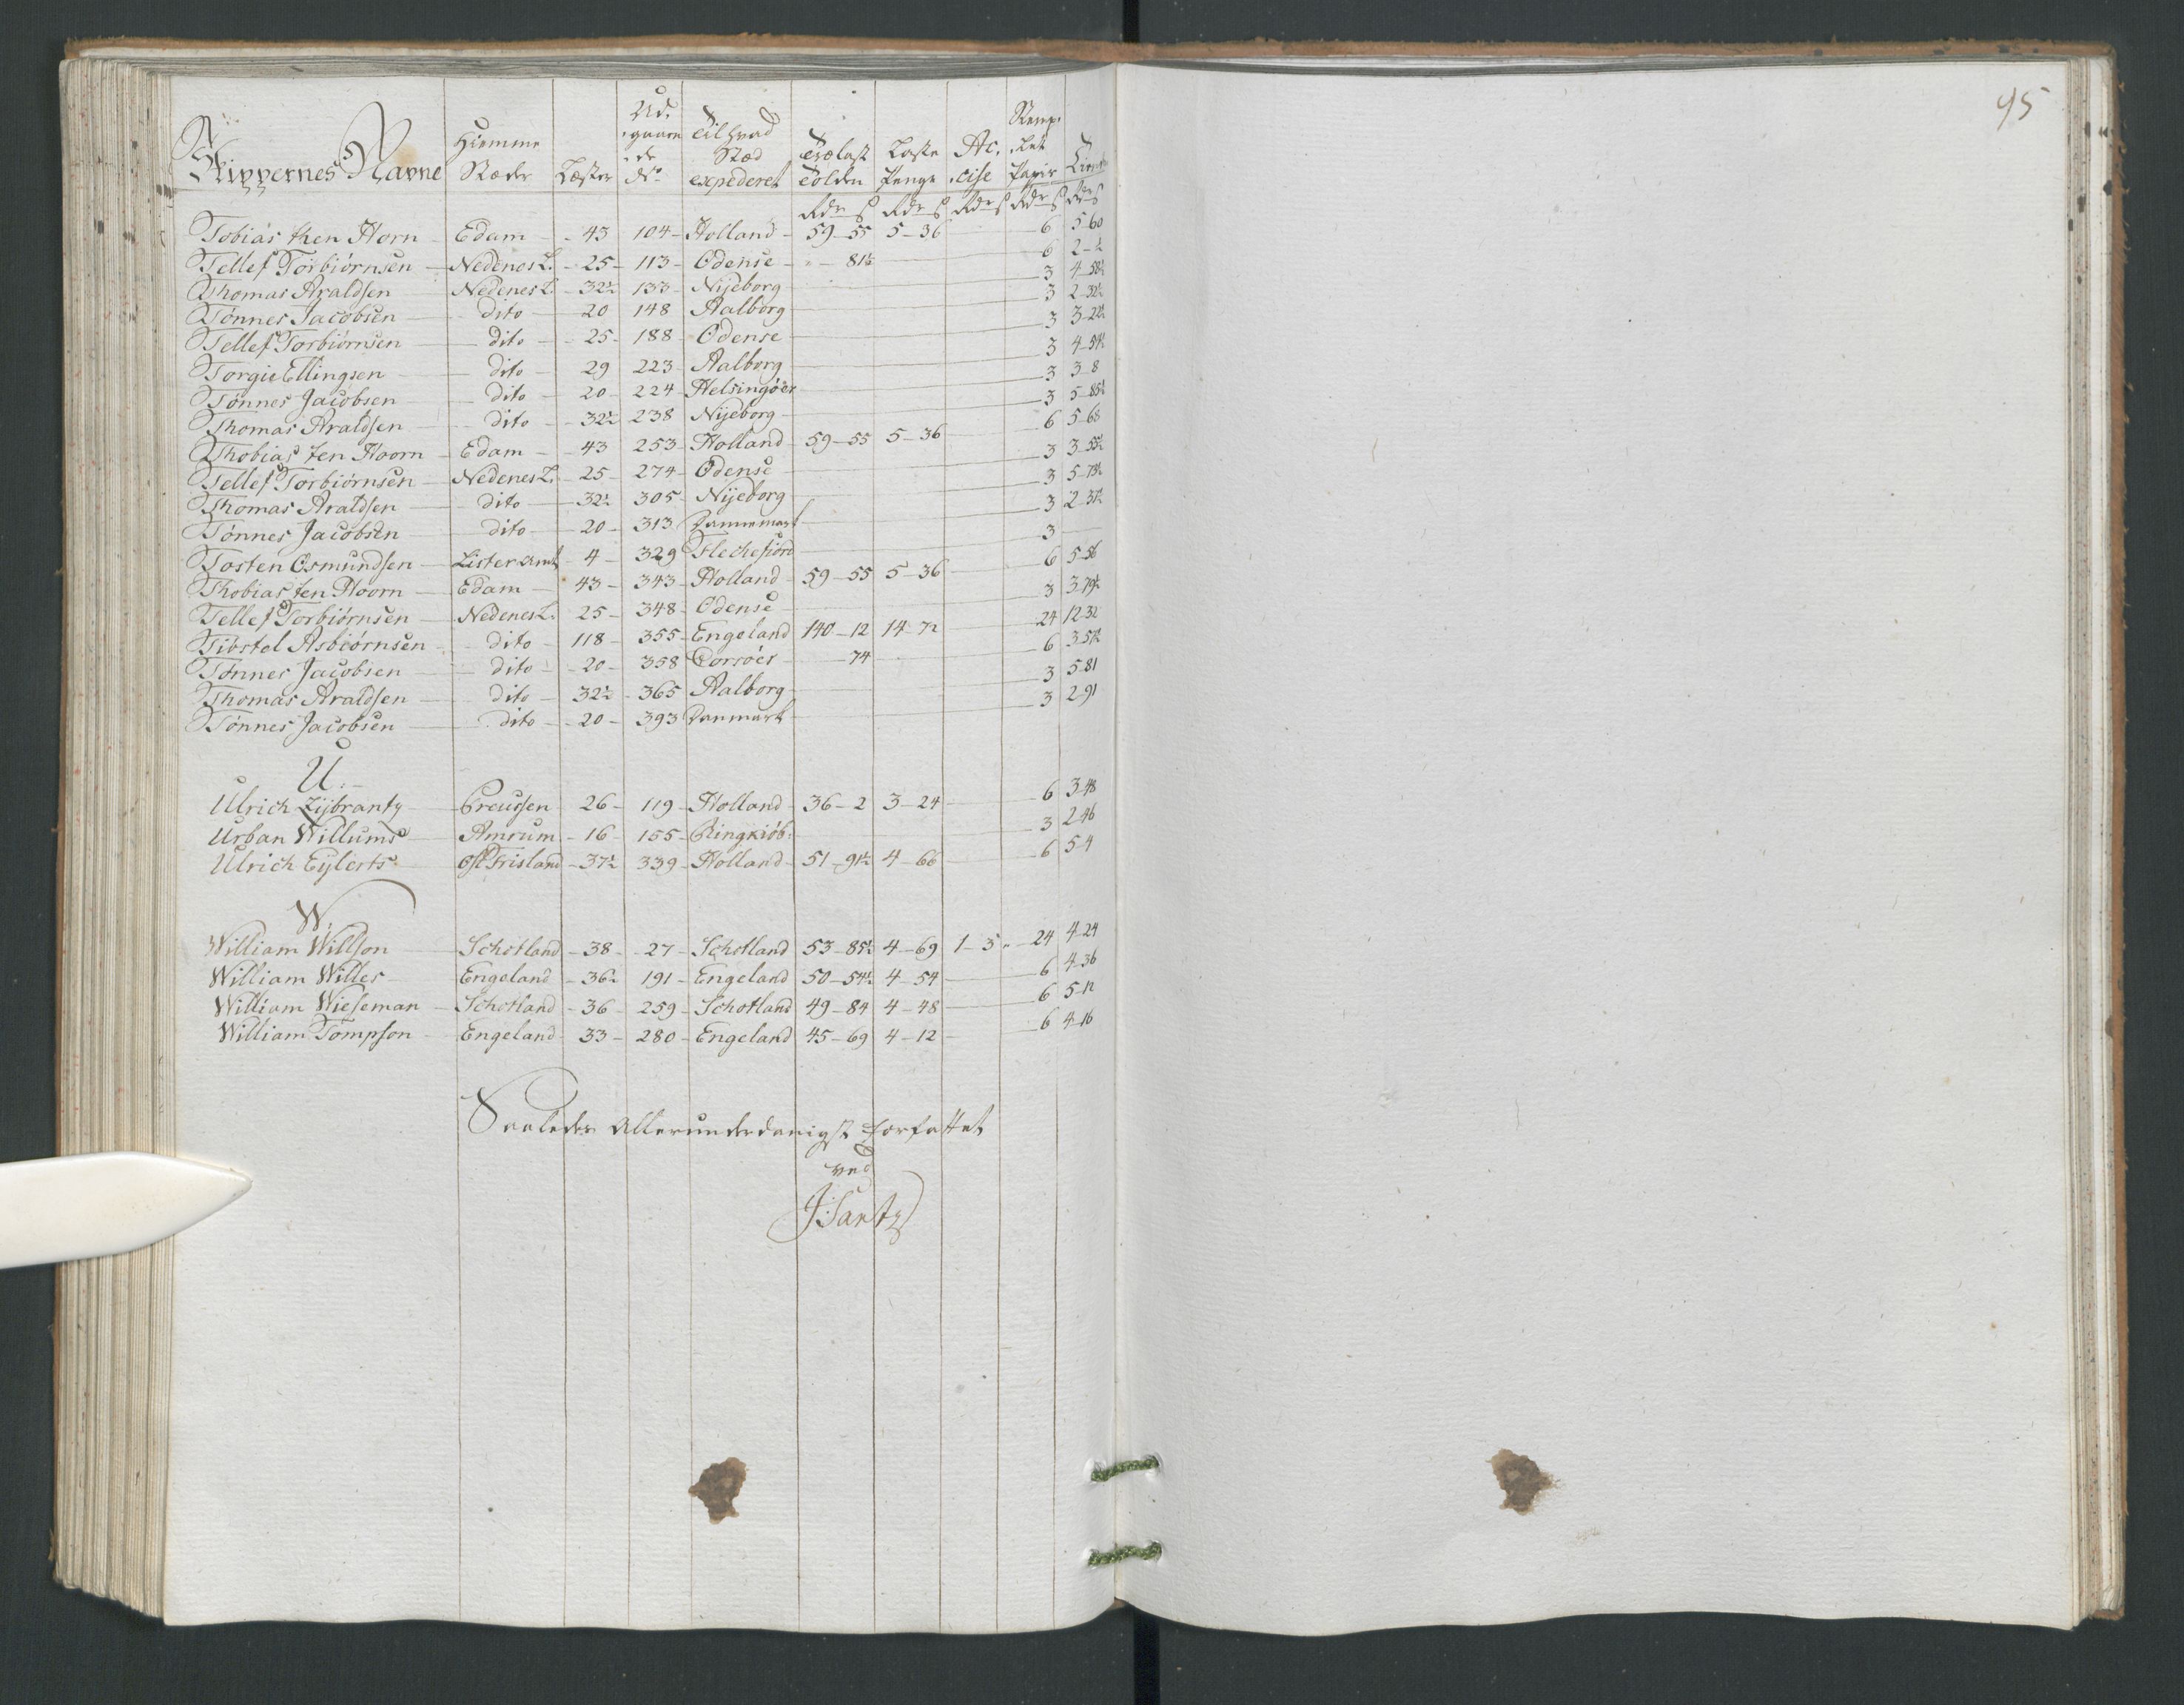 95
Skippernes Navne Hiemme Stæder Læster Udgaaende No Til hvad Stæd expederet Trælast Tolden Laste Penge Accise Stemplet Papir
Rdr ß Rdr ß Rdr ß Rdr ß Rdr ß
Tobias then Horn - Edam - 43 104 - Holland - 59-55 5-36 6 5-60
Tellef Torbiørnsen - Nedenes L. - 25 - 113 - Odense - 81½ 6 2-½
Thomas Araldsen Nedenes L. - 32½ 133 - Nijeborg 3 4-58½
Tønnes Jacobsen dito 20 148 Aalborg 3 2-32½
Tellef Torbiørnsen dito - 25 - 188 - Odense 3 3-22½
Torgie Ellingsen dito - 29 223 - Aalborg 3 4-54½
Tønnes Jacobsen dito - 20 - 224 - Helsingøer 3 3-8
Thomas Araldsen dito - 32½ 238 Nijeborg 3 5-85½
Thobias ten Hoorn - Edam - 43 253 - Holland - 59-55 5-36 6 5-68
Tellef Torbiørnsen - Nedenes L. - 25 - 274 - Odense 3 3-55½
Thomas Araldsen dito - 32½ 305 - Nijeborg 3 5-73½
Tønnes Jacobsen dito - 20 - 313 Dannemark 3 2-37½
Tosten Osmundsen - Lister amt 4 - 329 Flechefiord 3
Thobias ten Hoorn - Edam - 43 - 343 - Holland - 59-55 5-36 6 5-56
Tellef Torbiørnsen - Nedenes L. 25 - 348 - Odense 3 3-79½
Tibstol Asbiørnsen dito 118 - 355 - Engeland 140-12 14-72 24 12-32
Tønnes Jacobsen dito - 20 - 358 Corsöer - 74 6 3-57½
Thomas Araldsen dito - 32½ - 365 Aalborg 3 5-81
Tønnes Jacobsen dito - 20 - 393 Danmark 3 2-91
U.
Ulrich Zijbranty - Preussen 26 - 119 - Holland - 36-2 3-24 6 3-48
Urban Willums - Amrum - 16 - 155 - Ringkiöb: 3 2-46
Ulrich Eylerts - Ost Frisland - 37½ 339 - Holland - 51-91½ 4-66 6 5-4
W.
William Willson - Schotland - 38 - 27 - Schotland 53-85½ 4-69 1-3 24 4-24
William Willes - Engeland - 36½ 191 - Engeland 50-54½ 4-54 6 4-36
William Wieseman - Schotland - 36 - 259 - Schotland 49-84 4-48 6 5-12
William Tompson - Engeland 33 - 280 - Engeland 45-69 4-12 6 4-16
Saaledes Allerunderdanigst forfattet
ved